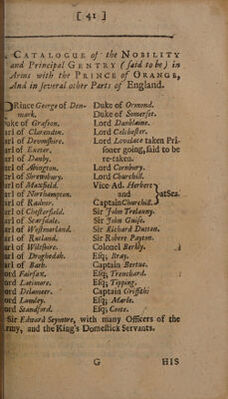 [ 41 ]
CATALOGUE of the NOBILITY
and Principal GENTRY (said to be) in
Arms with the PRINCE of ORANGE,
And in several other Parts of England.
PRince George of Den-
mark.
Duke of Grafton.
arl of Clarendon.
arl of Devonshire.
arl of Exeter.
arl of Danby.
arl of Abington.
arl of Shrewsbury.
arl of Maxfield.
arl of Northampton.
arl of Radnor.
arl of Chesterfield.
arl of Scarsdale.
arl of Westmorland.
arl of Rutland.
arl of Wiltshire.
arl of Droghedah.
arl of Bath.
ord Fairfax.
ord Latimore.
ord Delameer.
ord Lumley.
ord Standford.
Duke of Ormond.
Duke of Somerset.
Lord Dunblaine.
Lord Colchester.
Lord Lovelace taken Pri-
soner going, said to be
re-taken.
Lord Cornbury.
Lord Churchill.
Vice-Ad. Herbert
and
Captain Churchill.
at Sea.
Sir John Trelanny.
Sir John Guise.
Sir Richard Dutton.
Sir Robert Payton.
Colonel Berkly.
Esq; Bray.
Captain Bertue.
Esq; Trenchard.
Esq; Tipping.
Captain Griffith:
Esq; Marle.
Esq; Coote.
Sir Edward Seymtre, with many Officers of the
rmy, and the King's Domestick Servants.
G HIS